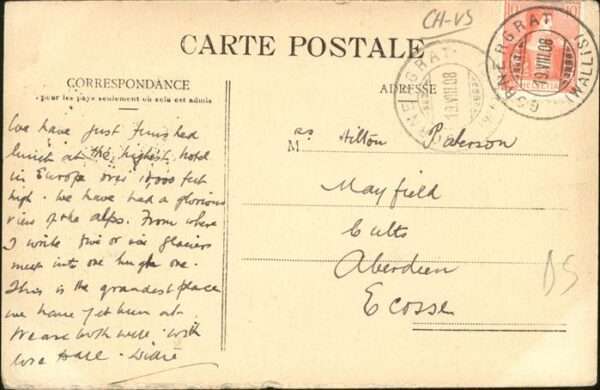 CH-VS
CARTE POSTALE
CORRESPONDANCE
pour les pays seulement où cela est admis
ADRESSE
GORNERGRAT (WALLIS)
19.VIII.08
GORNERGRAT
19.VIII.08
10
HELVETIA
We have just finished
lunch at the highest hotel
in Europe over 10,000 feet
high. We have had a glorious
view of the alps. From where
I write five or six glaciers
meet into one huge one.
This is the grandest place
we have yet been at.
We are both well. With
love to all.
M
Hilton Paterson
Mayfield
Cults
Aberdeen
Ecosse
DS